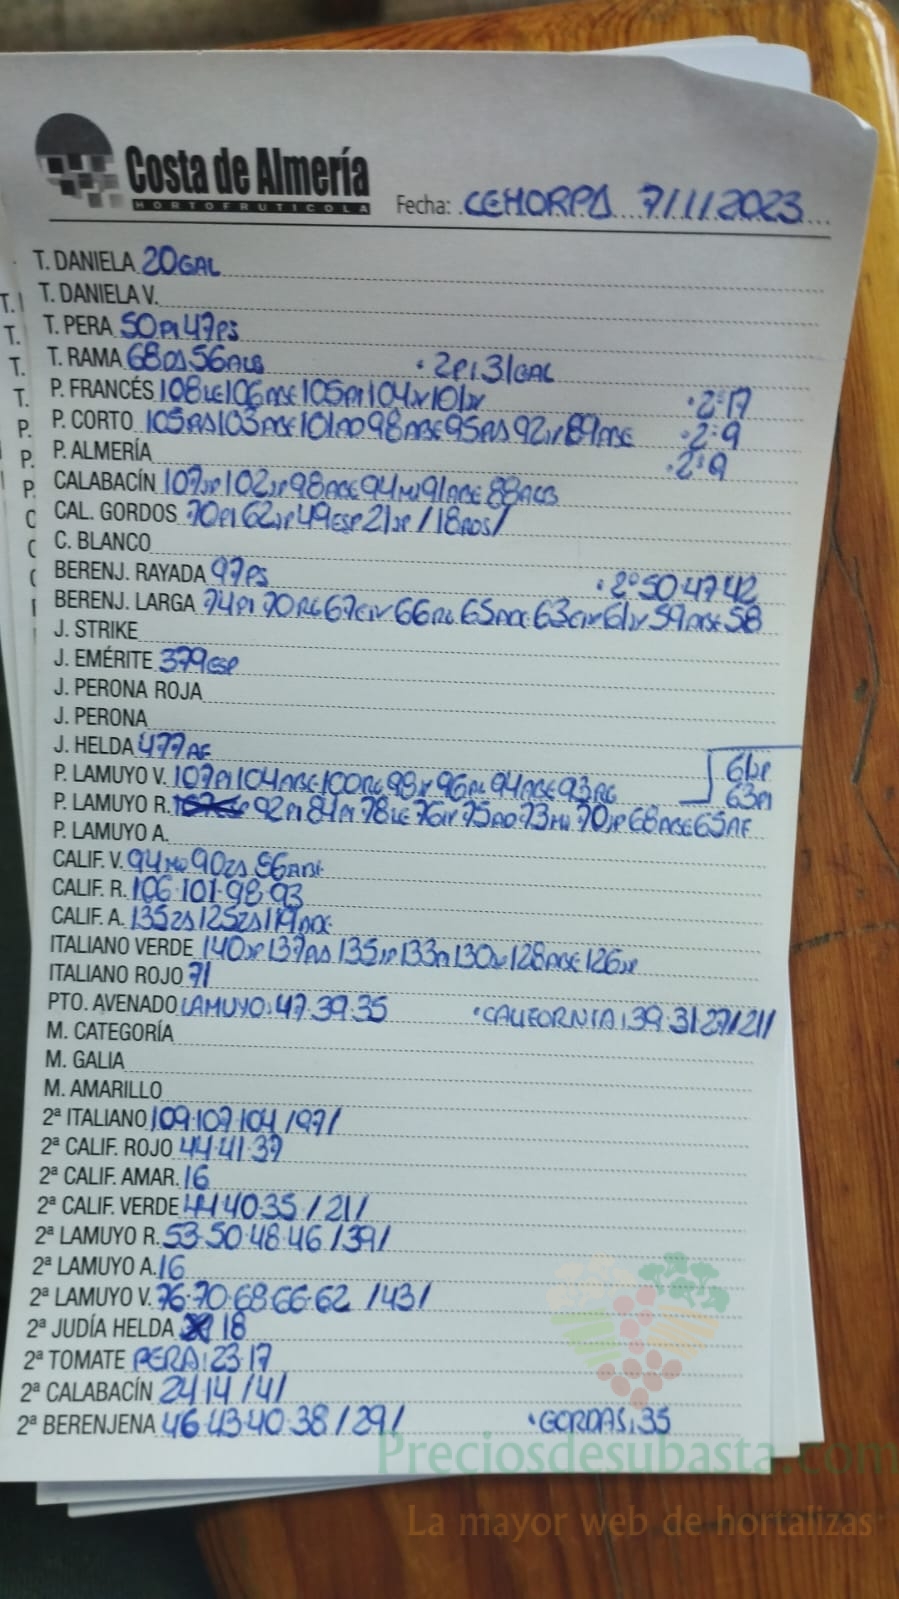 Costa de Almería
HORTOFRUTICOLA
Fecha: CEHORPA 7/11/2023
T. DANIELA 20GAL
T. DANIELA V.
T. PERA 50PI 47PS
T. RAMA 68OS 56ALB · 2PI 31GAL
P. FRANCÉS 108LE 106ABE 105PI 104JV 101JV · 2ª 17
P. CORTO 105AS 103ABE 101AO 98ABE 95AS 92JV 89ABE · 2ª 9
P. ALMERÍA · 2ª 9
CALABACÍN 107JP 102JP 98ABE 94MU 91ABE 88ALB
CAL. GORDOS 70PI 62JP 49ESP 21JP /18AOS/
C. BLANCO
BERENJ. RAYADA 97PS · 2ª 50·47·42
BERENJ. LARGA 74PI 70RG 67CIV 66RG 65 63CIV 61JV 59ABE 58
J. STRIKE
J. EMÉRITE 379ESP
J. PERONA ROJA
J. PERONA
J. HELDA 477AF
P. LAMUYO V. 107PI 104ABE 100RG 98JV 96RG 94ABE 93RG
61JP
63PI
P. LAMUYO R. 92PI 84PI 78LE 76JV 75AO 73MU 70JP 68ABE 65AF
P. LAMUYO A.
CALIF. V. 94MU 90ZS 86ABE
CALIF. R. 106·101·98·93
CALIF. A. 135ZS 125ZS 119
ITALIANO VERDE 140JP 137AS 135JP 133PI 130JV 128ABE 126JP
ITALIANO ROJO 71
PTO. AVENADO LAMUYO: 47·39·35 · CALIFORNIA: 39·31·27/21/
M. CATEGORÍA
M. GALIA
M. AMARILLO
2ª ITALIANO 109·107·104 /97/
2ª CALIF. ROJO 44·41·37
2ª CALIF. AMAR. 16
2ª CALIF. VERDE 44·40·35 /21/
2ª LAMUYO R. 53·50·48·46 /39/
2ª LAMUYO A. 16
2ª LAMUYO V. 76·70·68·66·62 /43/
2ª JUDÍA HELDA 18
2ª TOMATE PERA: 23·17
2ª CALABACÍN 24·14 /4/
2ª BERENJENA 46·43·40·38 /29/ · GORDAS: 35
Preciosdesubasta.com
La mayor web de hortalizas